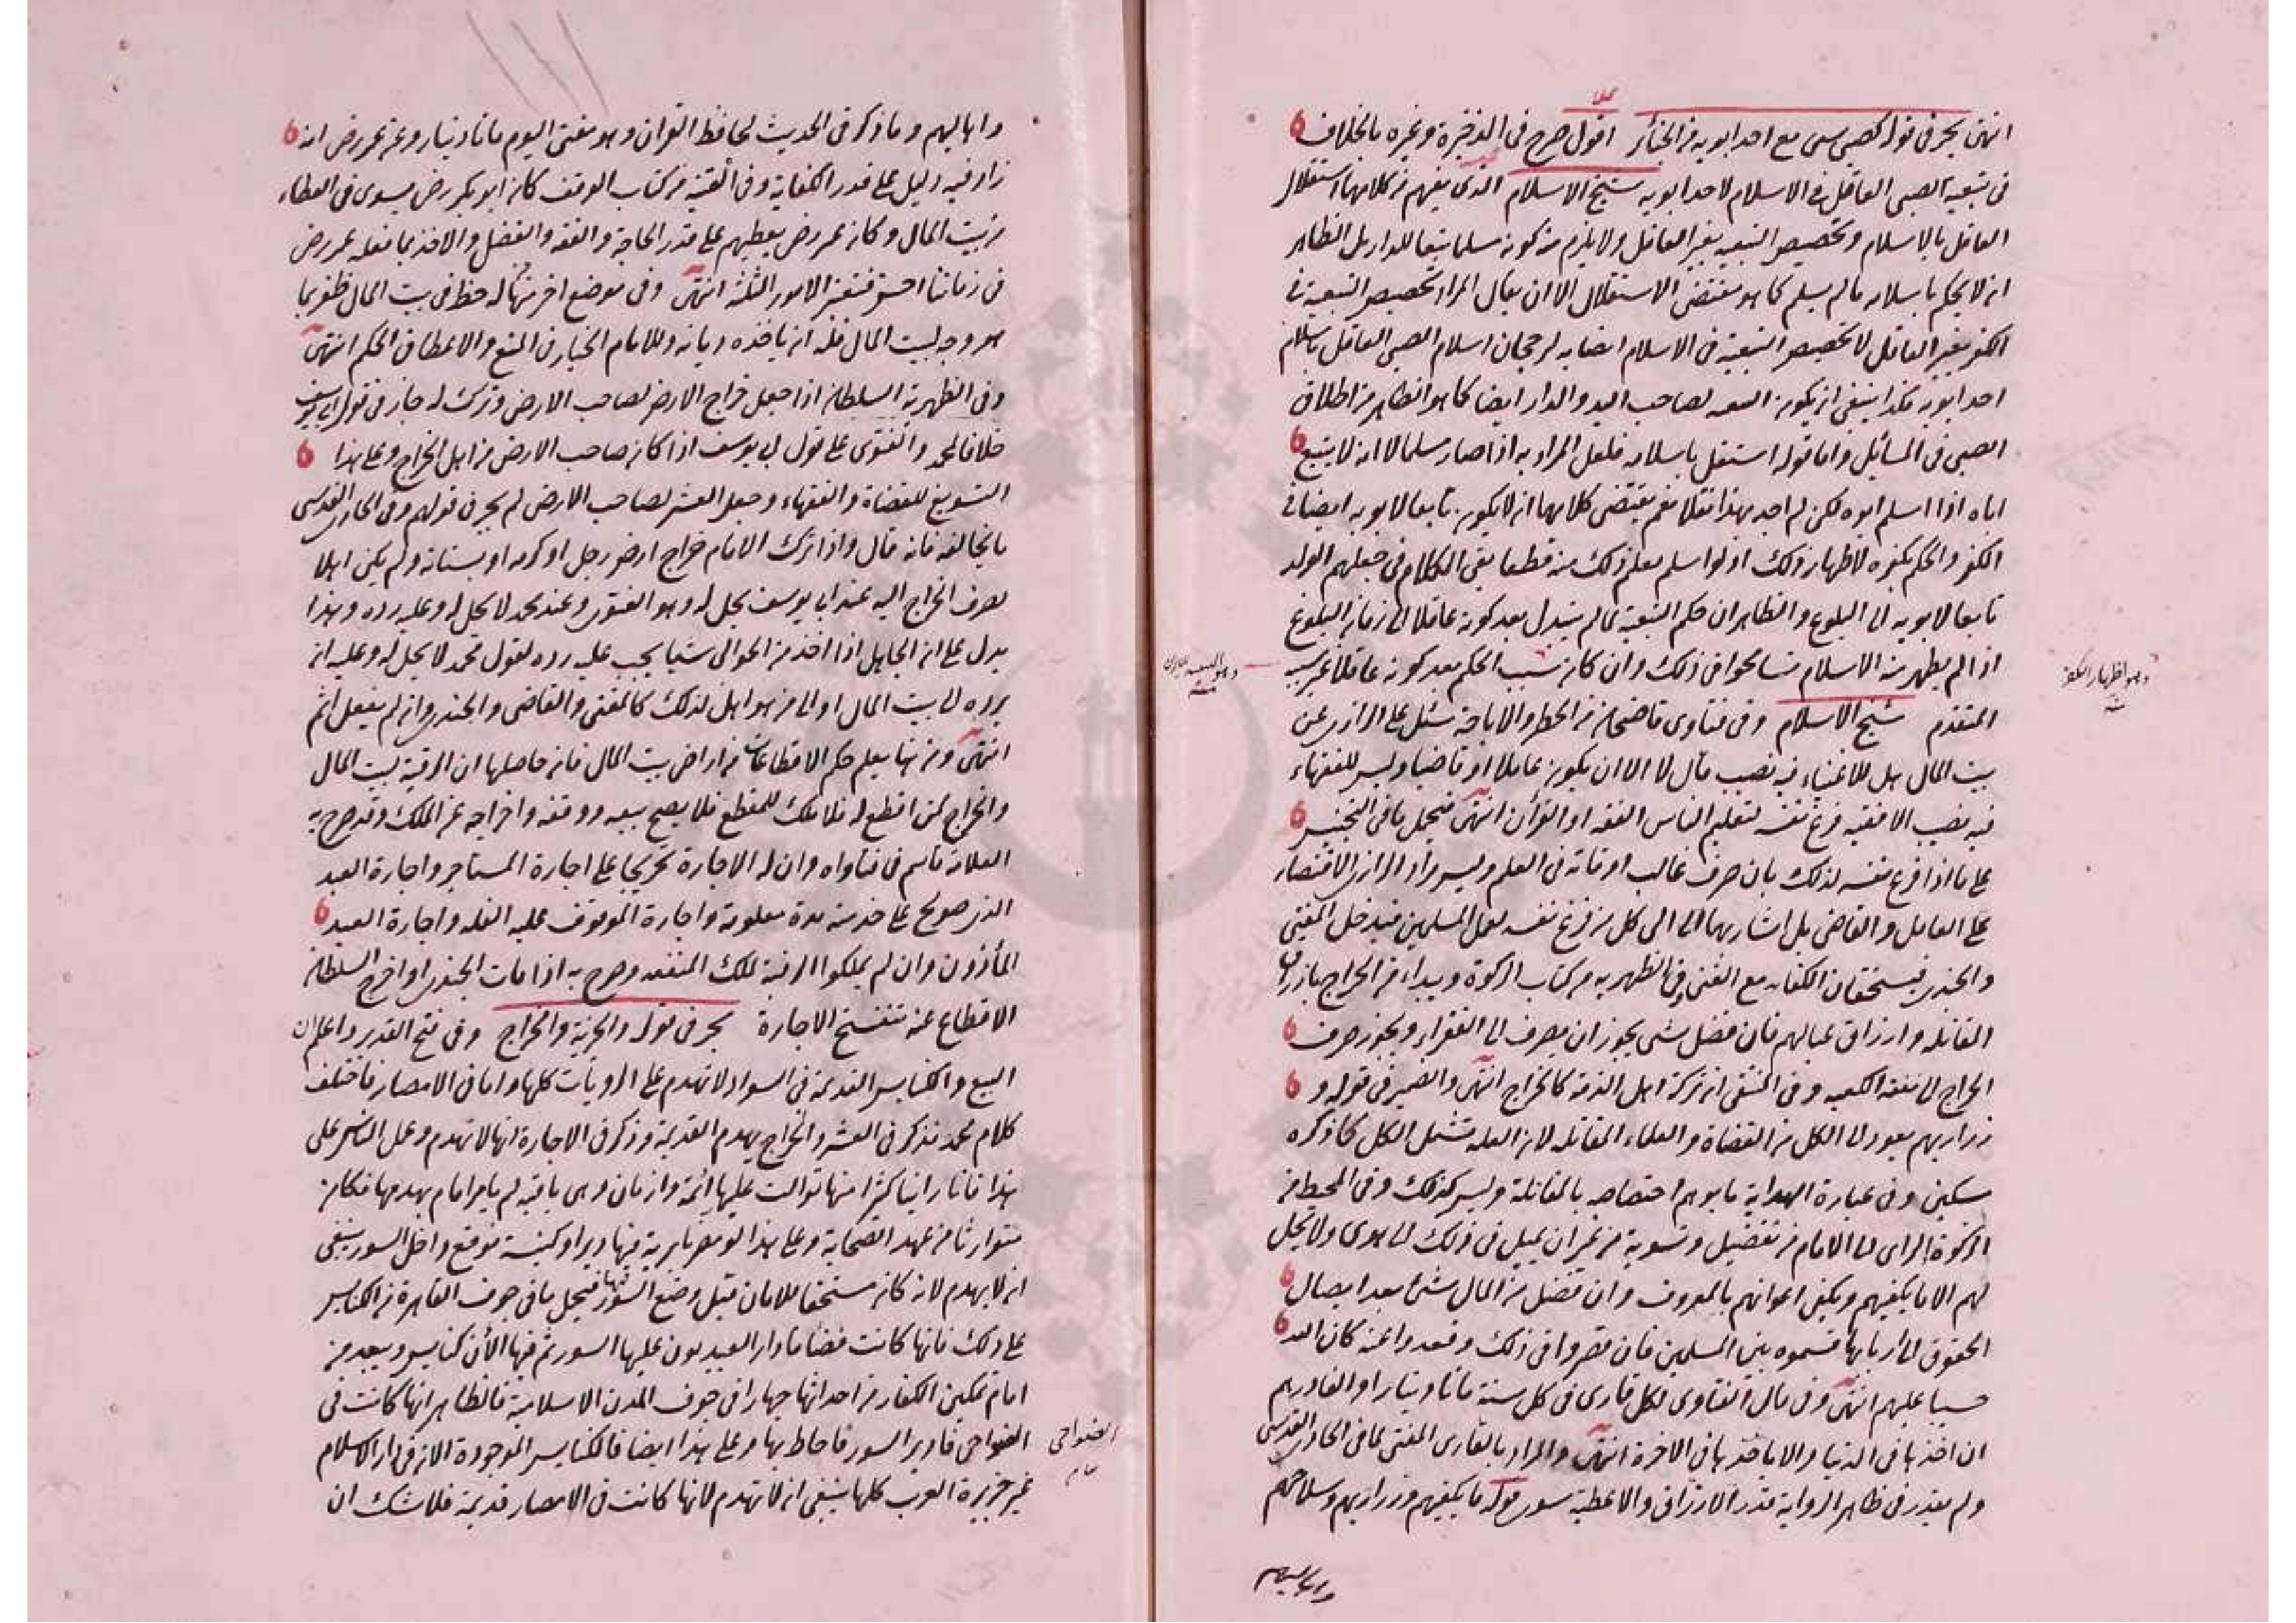 انتهى بحر فى قوله كصبي سبى مع احد ابويه من الجنائز اقول صرح فى الذخيرة وغيره بالخلاف
فى تبعية الصبى العاقل فى الاسلام لاحد ابويه شيخ الاسلام الذى يفهم من كلامهما استقلال
العاقل بالاسلام وتخصيص التبعيه بغير العاقل ولا يلزم من كونه مسلما تبعا للدار بل الظاهر
انه لا يحكم باسلامه ما لم يسلم كما هو مقتضى الاستقلال الا ان يقال المراد تخصيص التبعية فى
الكفر بغير العاقل لا تخصيص التبعية فى الاسلام ايضا به لرجحان اسلام الصبى العاقل باسلام
احد ابويه هكذا ينبغى ان يكون التبعيه لصاحب اليد والدار ايضا كما هو الظاهر من اطلاق
الصبى فى المسائل واما قوله استقل باسلامه فلعل المراد به اذا صار مسلما لا انه لا يتبع
اباه اذا اسلم ابوه لكن لم اجد بهذا نقلا نعم يقتضى كلامهما ان لا يكون تابعا لابويه ايضا فى
الكفر والحكم بكفره لاظهار ذلك اذ لو اسلم يعلم ذلك منه قطعا بقى الكلام فى جعلهم الولد
تابعا لابويه الى البلوغ والظاهر ان حكم التبعية لما لم يتبدل بعد كونه عاقلا الى زمان البلوغ
اذا لم يظهر منه الاسلام تسامحوا فى ذلك وان كان سبب الحكم بعد كونه عاقلا غير سببه
وهو اظهار الكفر
المتقدم شيخ الاسلام وفى فتاوى قاضيخان من الحظر والاباحة سئل على الرازى عن
بيت المال هل للاغنياء فيه نصيب قال لا الا ان يكون عاملا او قاضيا وليس للفقهاء
فيه نصيب الا فقيه فرغ نفسه لتعليم الناس الفقه او القرآن انتهى فيحمل ما فى التجنيس
على ما اذا فرغ نفسه لذلك بان صرف غالب اوقاته فى العلم وليس مراد الرازى الاقتصار
على العامل والقاضى بل اشار بهما الى كل من فرغ نفسه لعمل المسلمين فيدخل المفتى
والجندى فيستحقان الكفايه مع الغنى وفى الظهيريه من كتاب الزكوة ويبداء من الخراج بارزاق
المقاتله وارزاق عيالهم فان فضل شى يجوز ان يصرف الى الفقراء ويجوز صرف
الخراج الى نفقة الكعبه وفى المنتقى ان تركة اهل الذمة كالخراج انتهى والضمير فى قوله و
ذراريهم يعود الى الكل من القضاة والعلماء المقاتله لان العله تشمل الكل كما ذكره
مسكين وفى عبارة الهداية ما يوهم اختصاصه بالمقاتلة وليس كذلك وفى المحيط من
الزكوة الراى الى الامام من تفضيل وتسوية من غير ان يميل فى ذلك الى هوى ولا يحل
لهم الا ما يكفيهم ويكفى اعوانهم بالمعروف وان فضل من المال شئ بعد ايصال
الحقوق الى اربابها قسموه بين المسلمين فان قصروا فى ذلك وقعدوا عنه كان الله
حسيبا عليهم انتهى وفى مال الفتاوى لكل قارى فى كل سنة ماتا دينار او الفا درهم
ان اخذها فى الدنيا والا ياخذها فى الاخرة انتهى والمراد بالقارى المفتى لما فى الحاوى القدسى
ولم يقدر فى ظاهر الرواية قدر الارزاق والاعطية سوى قوله ما يكفيهم وذراريهم وسلاحهم
واهاليهم
واهاليهم وما ذكر فى الحديث لحافظ القران وهو مفتى اليوم ماتا دينار وعن عمر رض انه
زاد فيه دليل على قدر الكفاية وفى القنية من كتاب الوقف كان ابو بكر رض يسوى فى العطاء
من بيت المال وكان عمر رض يعطيهم على قدر الحاجة والفقه والفضل والاخذ بما فعله عمر رض
فى زماننا احسن فتعتبر الامور الثلثة انتهى وفى موضع اخر منها له حظ فى بيت المال ظفر بما
هو وجه لبيت المال فله ان ياخذه ديانه وللامام الخيار فى المنع والاعطا فى الحكم انتهى
وفى الظهرية السلطان اذا جعل خراج الارض لصاحب الارض وتركه له جاز فى قول ابى يوسف
خلافا لمحمد والفتوى على قول ابى يوسف اذا كان صاحب الارض من اهل الخراج وعلى هذا
التسويغ للقضاة والفقهاء وجعل العشر لصاحب الارض لم يجز فى قولهم وفى الحاوى القدسى
ما يخالفه فانه قال واذا ترك الامام خراج ارض رجل او كرمه او بستانه ولم يكن اهلا
لصرف الخراج اليه عند ابى يوسف يحل له وهو الفتوى وعند محمد لا يحل له وعليه رده وهذا
يدل على ان الجاهل اذا اخذ من الجوالى شيا يجب عليه رده لقول محمد لا يحل له وعليه ان
يرده الى بيت المال او الى من هو اهل لذلك كالمفتى والقاضى والجندى وان لم يفعل اثم
انتهى ومن هنا يعلم حكم الاقطاعات من اراضى بيت المال فان حاصلها ان الرقبة لبيت المال
والخراج لمن اقطع له فلا ملك للمقطع فلا يصح بيعه ووقفه واخراجه عن الملك وقد صرح به
العلامة قاسم فى فتاواه وان له الاجارة تخريجا على اجارة المستاجر واجارة العبد
الذى صولح على خدمته مدة معلومة واجارة الموقوف عليه الغله واجارة العبد
المأذون وان لم يملكوا الرقبة لملك المنفعه وصرح به اذا مات الجندى او اخرج السلطان
الاقطاع عنه تنفسخ الاجارة بحر فى قوله والجزية والخراج وفى فتح القدير واعلم ان
البيع والكنايس القديمة فى السواد لا تهدم على الرويات كلها واما فى الامصار فاختلف
كلام محمد فذكر فى العشر والخراج يهدم القديمة وذكر فى الاجارة انها لا تهدم وعمل الناس على
هذا فانا راينا كثيرا منها توالت عليها ائمة وازمان وهى باقيه لم يامر امام بهدمها فكان
متوارثا من عهد الصحابة وعلى هذا لو مصرنا برية فيها دير او كنيسة فوقع داخل السور ينبغى
ان لا يهدم لانه كان مستحقا للامان قبل وضع السور فيحمل ما فى جوف القاهرة من الكنايس
على ذلك فانها كانت فضا فادار العبيديون عليها السور ثم فيها الأن كنايس ويبعد من
امام تمكين الكفار من احداثها جهارا فى جوف المدن الاسلامية فالظاهر انها كانت فى
الضواحى فادير السور فاحاط بها وعلى هذا ايضا فالكنايس الموجودة الان فى دار الاسلام
الضواحى
غير جزيرة العرب كلها ينبغى ان لا تهدم لانها كانت فى الامصار قديمة فلا شك ان